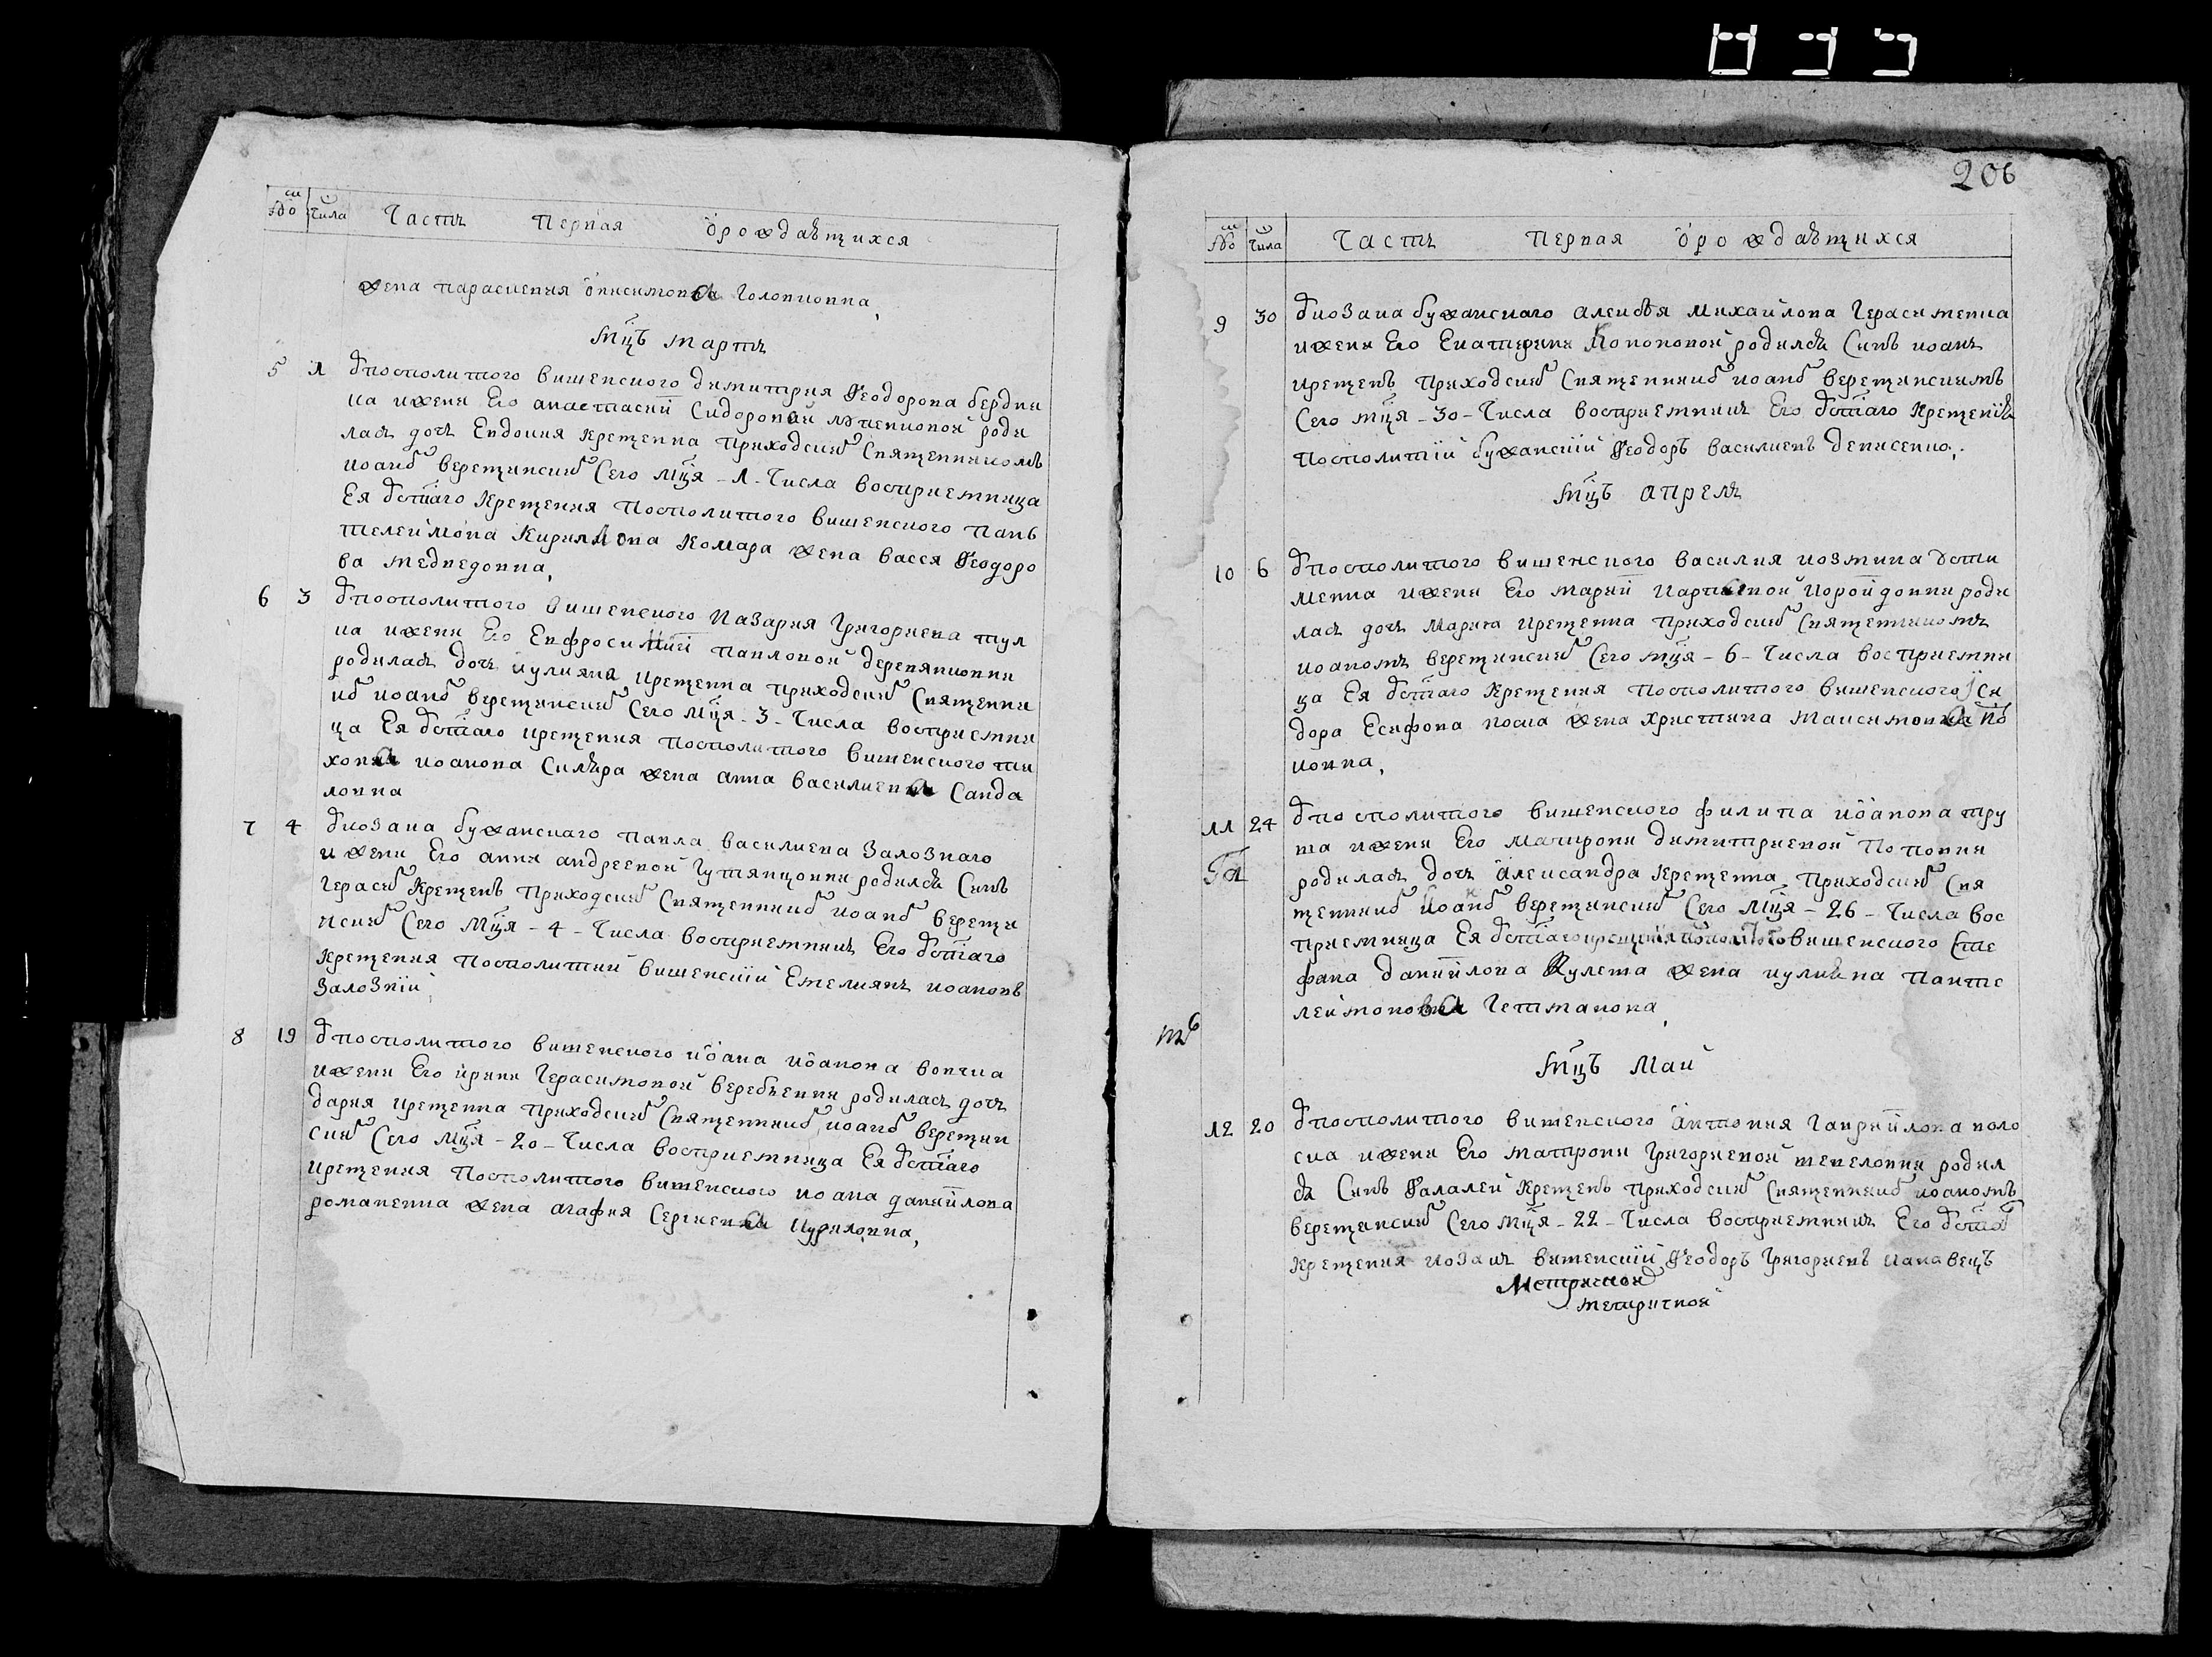 206
№ Числа Часть Первая ѡ рождающихся
жена Параскевия Онисимовна Головковна,
Мц҃ъ Мартъ
5 1 ѿ посполитого вишенского Димитрия Феодорова Бердни
ка и жени Его Анастасии Сидоровой роди
лась дочь Евдокия крещенна приходским Священником
Иоаном Верещинским Сего мц҃я - 1 - Числа восприемница
Ея ѿ с҃таго Крещения посполитого вишенского Пан
телеймона Кирилова Комара жена Васся Феодоро
ва Медведовна,
6 3 ѿ посполитого вишенского Назария Григориева
ка и жени Его Евфросинии Павловой Деревянковни
родилась дочь Иулияна крещенна приходским Священни
ком Иоаном Верещинским Сего мц҃я - 3 - Числа восприемни
ца Ея ѿ с҃таго крещения посполитого вишенского Ти
хона Иоанова жена Анна Василиевна Санда
ловна
7 4 ѿ козака бужанскаго Павла Василиева Залозного
и жени Его Анни Андреевой родился Синъ
Герасим Крещенъ приходским Священником Иоаном Верещи
нским Сего мц҃я - 4 - Числа восприемникъ Его ѿ с҃таго
Крещения посполитий вишенский Емелиянъ Иоановъ
Залозний
8 19 ѿ посполитого вишенского Иоана Иоанова Вовчка
и жени Его Ирини Герасимовой родилась дочь
Дария крещенна приходским Священником Иоаном Верещин
ским Сего мц҃я - 20 - Числа восприемница Ея ѿ с҃таго
крещения посполитого вишенского Иоана Даниилова
Романенка жена Агафия Сергиевна Куриловна,
№ Числа Часть Первая ѡ рождающихся
9 30 ѿ козака бужанскаго Алексея Михаилова Герасименка
и жени Его Екатерини Кононовой родился Синъ Иоанъ
крещенъ приходским Священником Иоаном Верещинскимъ
Сего мц҃я - 30 - Числа восприемникъ Его ѿ с҃таго Крещения
посполитий бужанский Феодоръ Василиевъ Денисенко,
Мц҃ъ Апрель
10 6 ѿ посполитого вишенского Василия Козмина Усти
менка и жени Его Марии Карповой роди
лась дочь Марина крещенна приходским Священникомъ
Иоаномъ Верещинским Сего мц҃я - 6 - Числа восприемни
ца Ея ѿ с҃таго Крещения посполитого вишенского Си
дора Есифова жена Христина Максимовна
ковна,
11 24 ѿ посполитого вишенского Филипа Иоанова Тру
ша и жени Его Матрони Димитриевой Поповни
родилась дочь Александра Крещенна приходским Свя
щенником Иоаном Верещинским Сего мц҃я - 26 - Числа вос
приемница Ея ѿ с҃таго крещения посполитого вишенского Сте
фана Даниилова Кулема жена Иулияна Панте
леймоновна Гетманова,
Мц҃ъ Май
12 20 ѿ посполитого вишенского Антония Гавриилова Коло
ска и жени Его Матрони Григориевой родил
ся Синъ Фалалей Крещенъ приходским Священником Иоаномъ
Верещинским Сего мц҃я - 22 - Числа восприемникъ Его ѿ с҃таго
Крещения козакъ вишенский Феодоръ Григориевъ Канавецъ
Метричной
метричной